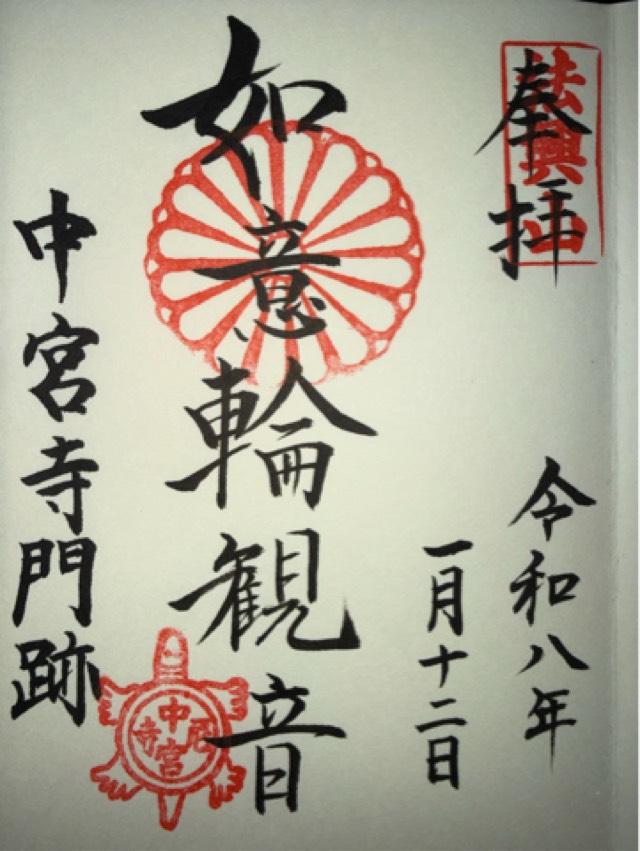 奉拝
法興山
令和八年
一月十二日
如意輪観音
中宮寺門跡
中宮寺尼